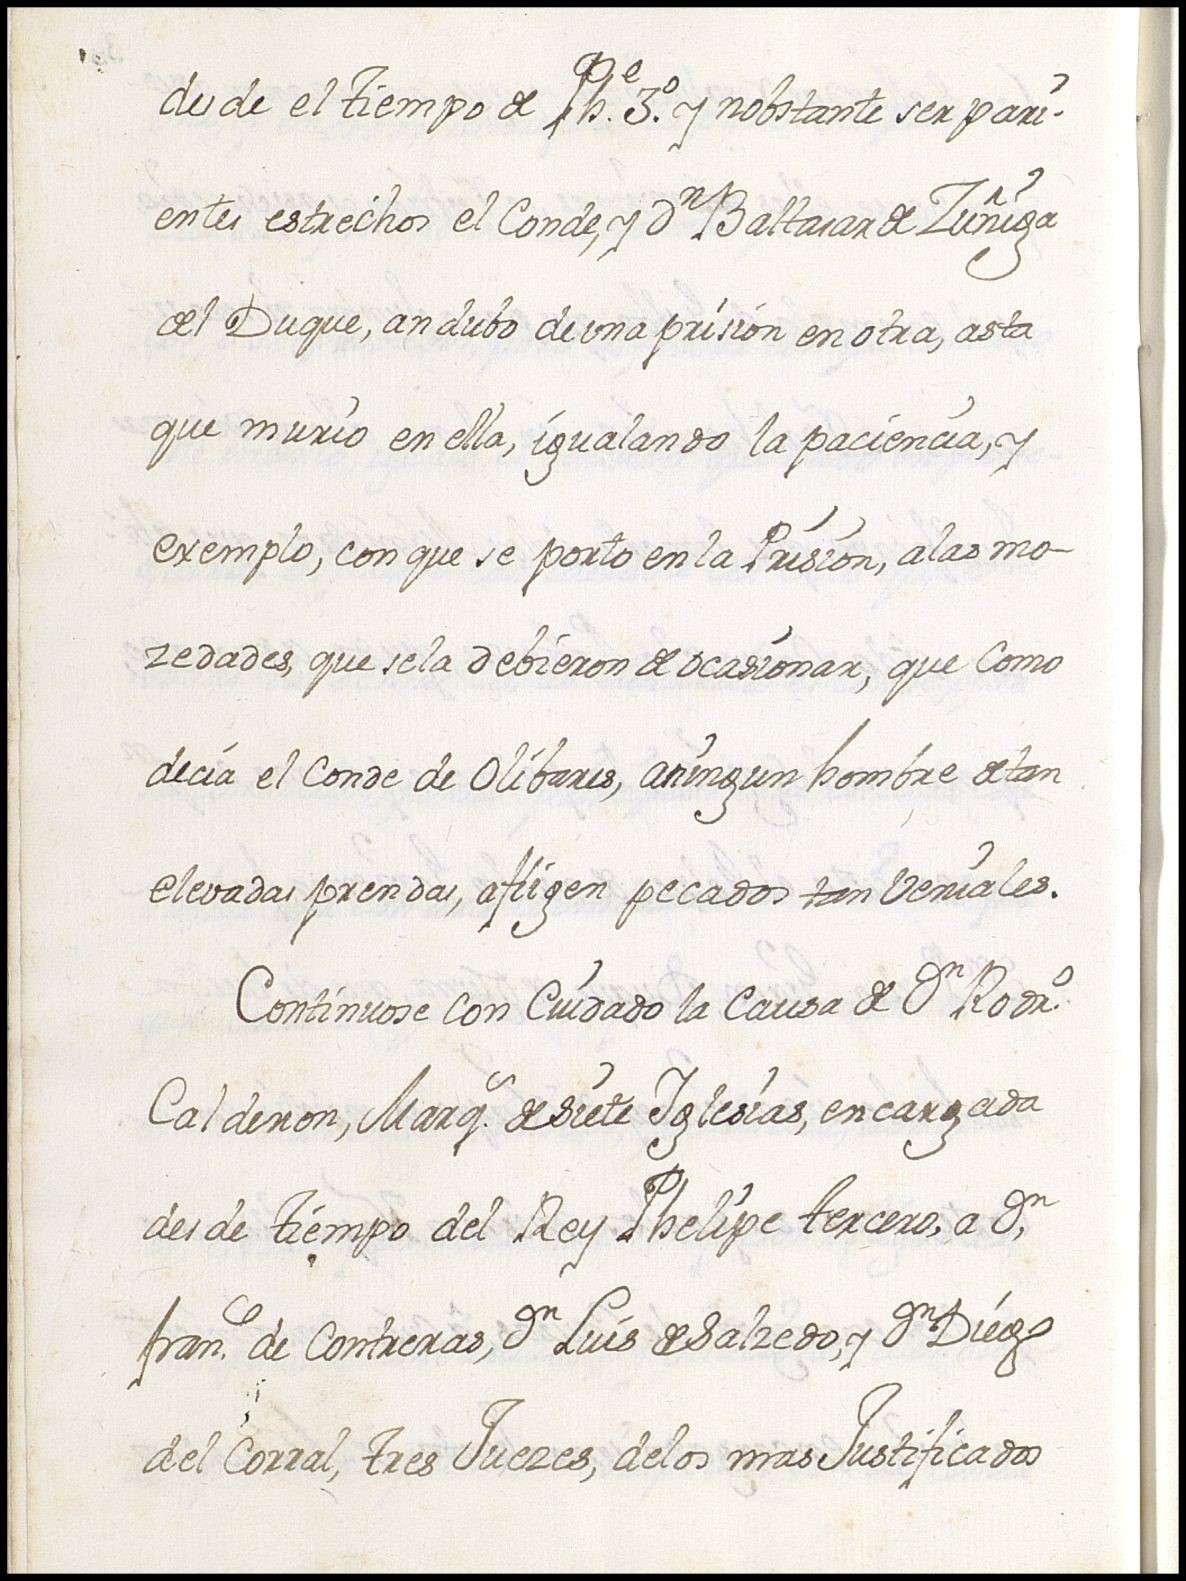 desde el tiempo de Phe. 3º. y nobstante ser pari-
entes estrechos el Conde, y Dn Baltasar de Zuñiga
del Duque, andubo de una prision en otra, asta
que murio en ella, igualando la paciencia, y
exemplo, con que se porto en la Prision, alas mo-
zedades, que sela debieron de ocasionar, que como
decia el Conde de Olibares, aningun hombre de tan
elevadas prendas, afligen pecados tan Veniales.
Continuose con Cuidado la Causa de Dn Rodro.
Calderon, Marqs. de Siete Iglesias, encargada
desde tiempo del Rey Phelipe tercero, a Dn,
franco. de Contreras, Dn Luis de Salzedo, y Dn Diego
del Corral, tres Juezes, delos mas Justificados